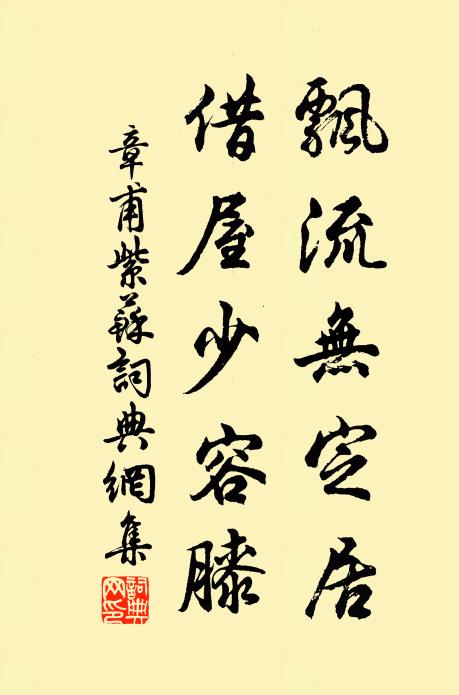 飄流無定居
借屋少容膝
章甫紫蘇詞典網集
詞典网印